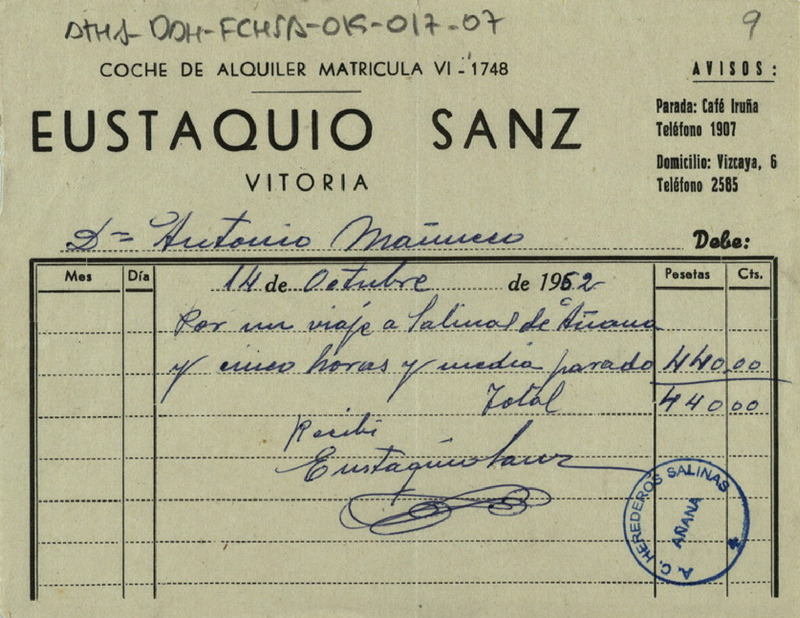 ATHA-DDH-FCHSA-015-017-07
9
COCHE DE ALQUILER MATRICULA VI - 1748
EUSTAQUIO SANZ
VITORIA
AVISOS:
Parada: Café Iruña
Teléfono 1907
Domicilio: Vizcaya, 6
Teléfono 2585
Dn Antonio Mañueco Debe:
Mes Día 14 de Octubre de 1962 Pesetas Cts.
Por un viaje a Salinas de Añana
y cinco horas y media parado 440,00
Total 440 00
Recibí
Eustaquio Sanz
A. C. HEREDEROS SALINAS
AÑANA